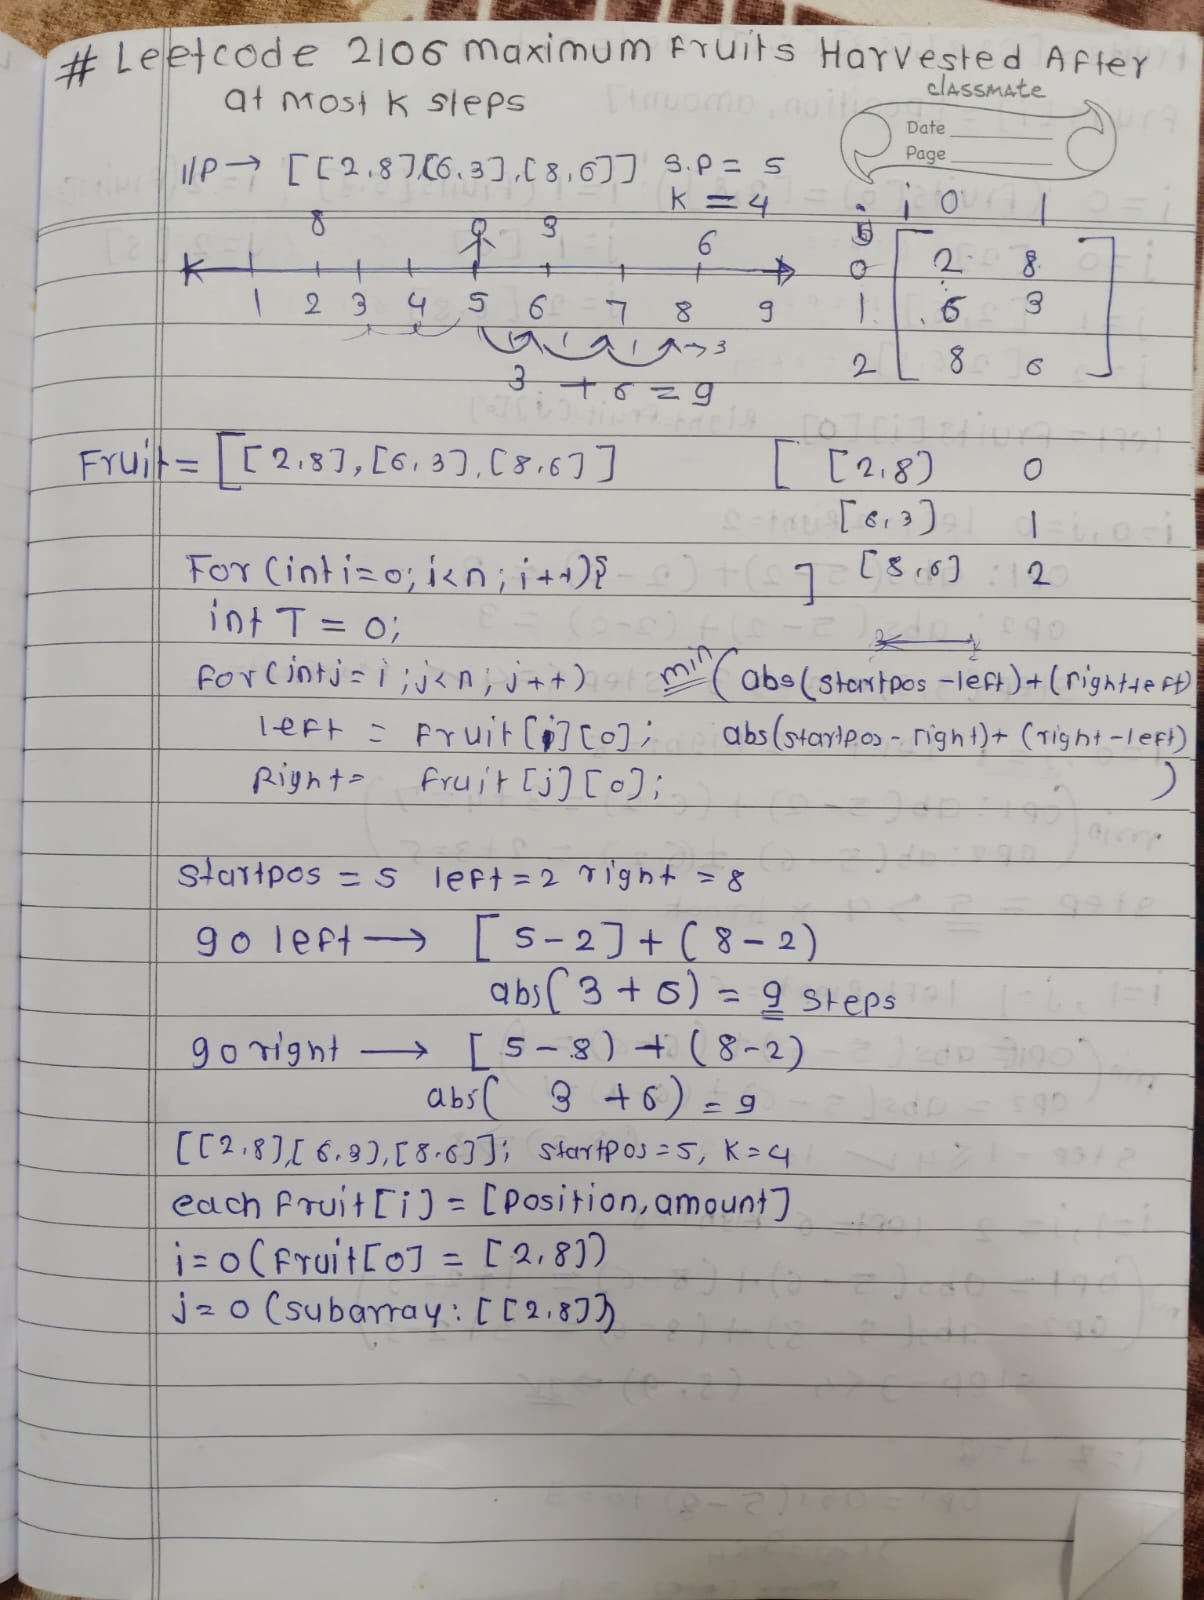 # Leetcode 2106 maximum Fruits Harvested After
at most k steps
classmate
Date
Page
I/P → [[2,8],[6,3],[8,6]] S.P = 5
K = 4
i 0 1
8 3 6
1 2 3 4 5 6 7 8 9
→3
3 + 6 = 9
0 2 8
1 6 3
2 8 6
Fruit = [[2,8],[6,3],[8,6]]
[ [2,8) 0
[6,3] 1
] [8,6] 2
For (int i=0; i<n; i++){
int T = 0;
for(int j= i ; j<n; j++)
min ( abs(startpos -left)+(right-left)
left = Fruit[i][0];
abs(startpos - right)+ (right-left)
)
Right= fruit[j][0];
startpos = 5 left=2 right = 8
go left → [5-2]+(8-2)
abs(3+6) = 9 steps
go right → [5-8)+(8-2)
abs( 3 +6) = 9
[[2,8],[6,3),[8,6]]; startpos=5, K=4
each fruit[i] = [position, amount]
i=0 (fruit[0] = [2,8])
j=0 (subarray: [[2,8]])